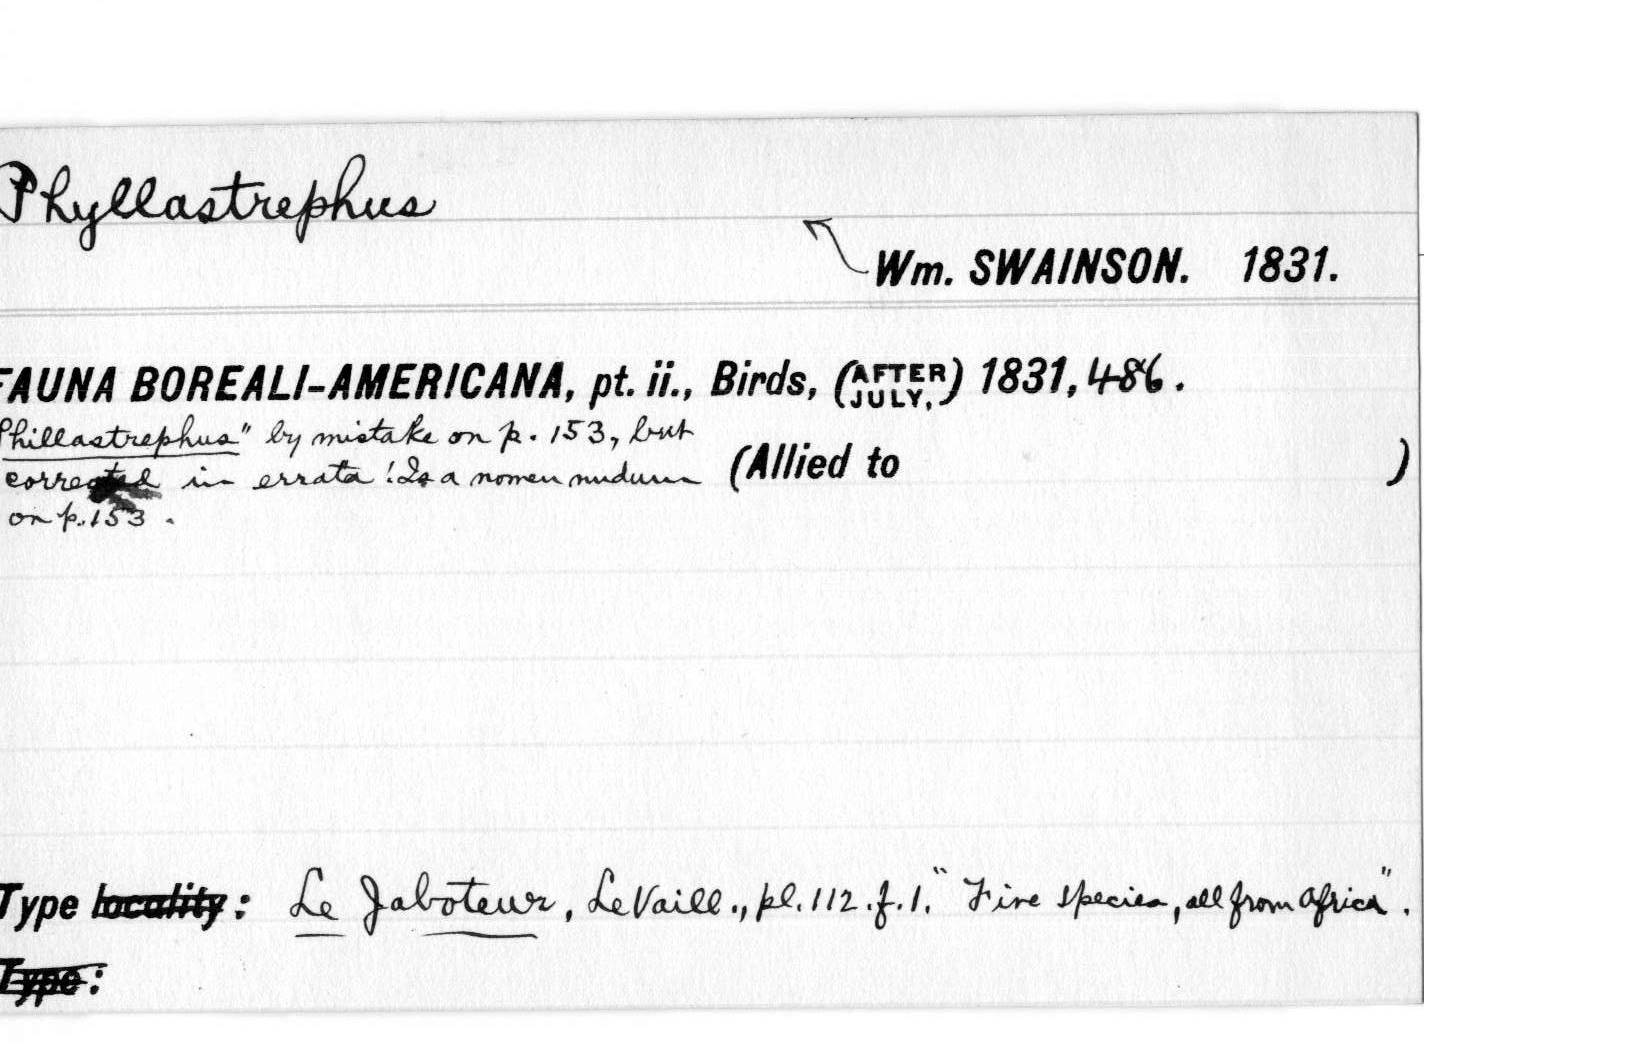 Phyllastrephus
Wm. SWAINSON. 1831.
FAUNA BOREALI-AMERICANA, pt. ii., Birds, (AFTER JULY,) 1831, 486.
Phillastrephus" by mistake on p. 153, but
corrected in errata! Is a nomen nudum
on p. 153.
(Allied to )
Type locality: Le Jaboteur, LeVaill., pl. 112. f. 1. "Five species, all from Africa".
Type: